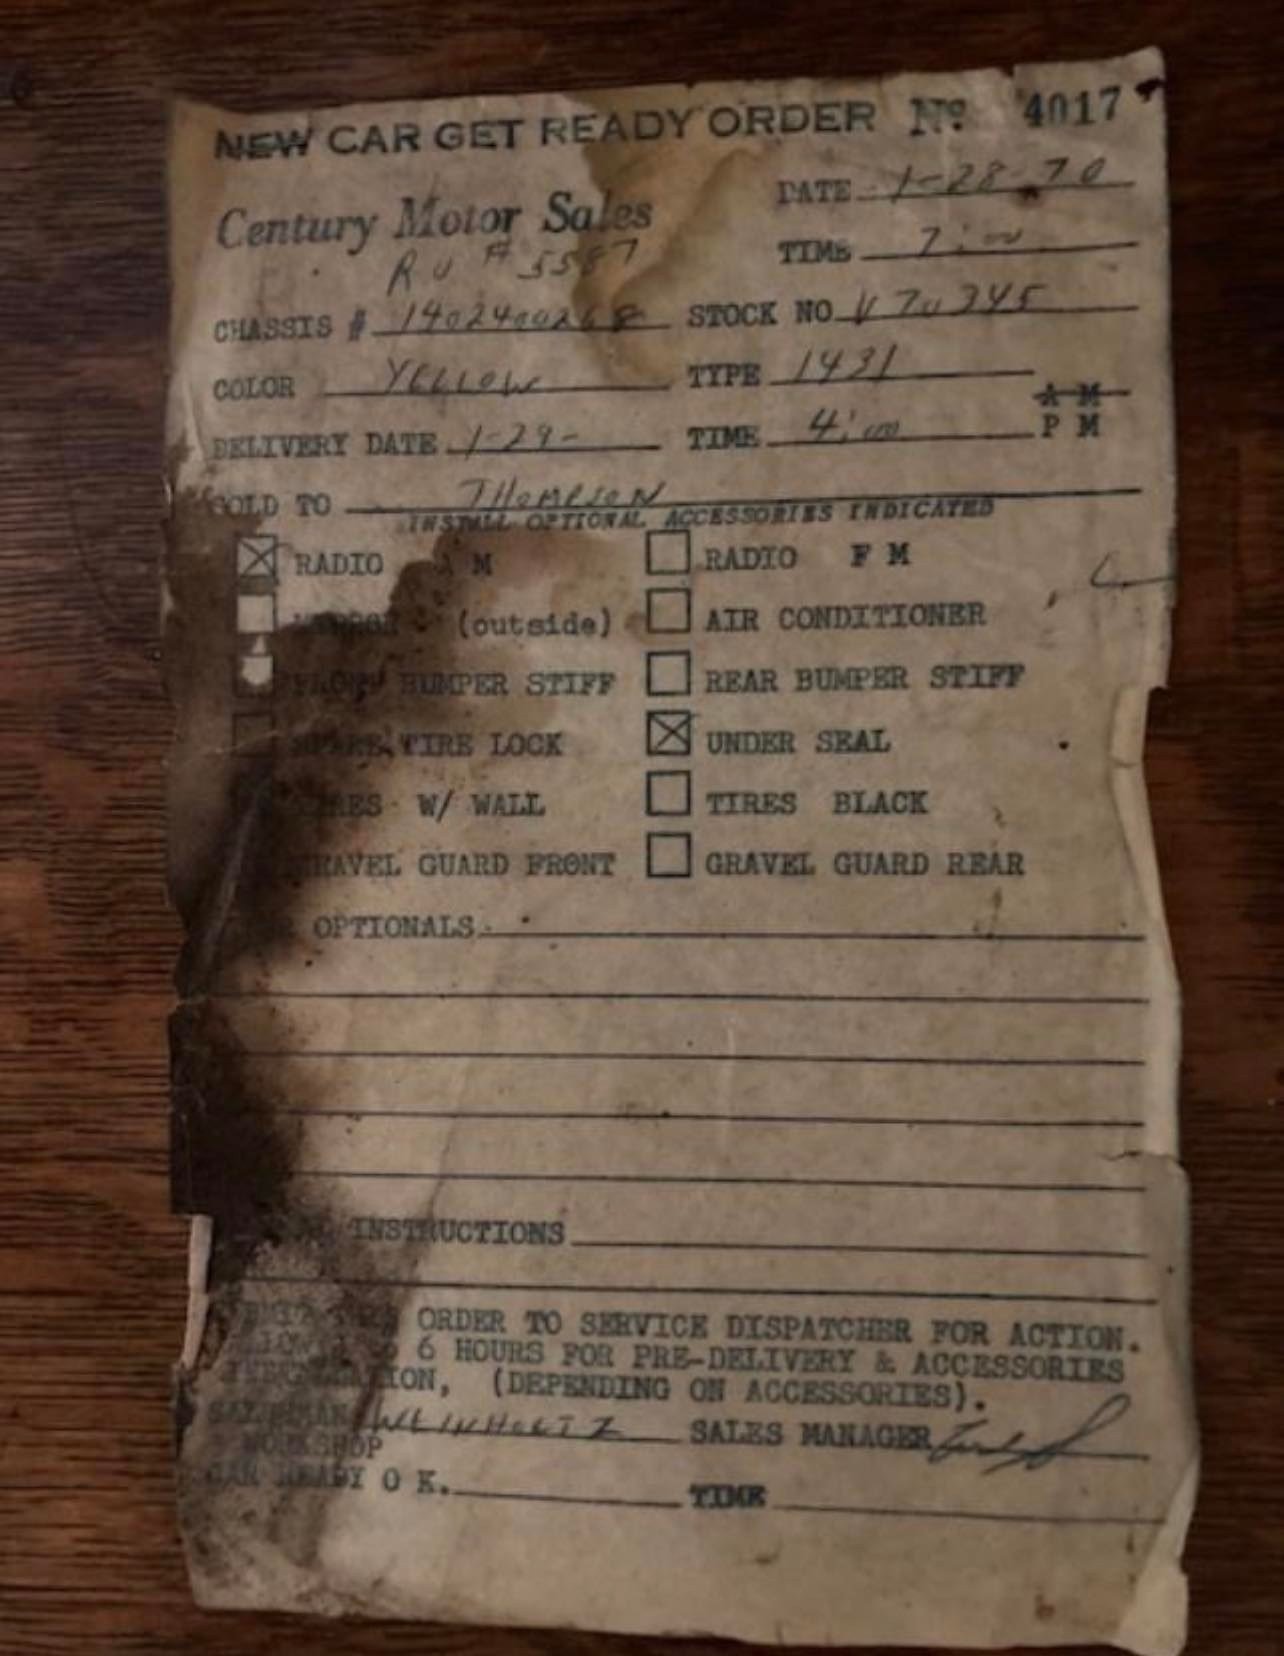 NEW CAR GET READY ORDER Nº 4017
DATE 1-28-70
Century Motor Sales
TIME 7:00
R U # 5587
CHASSIS # 1402400268 STOCK NO V70345
COLOR YELLOW TYPE 1431
A M
DELIVERY DATE 1-29- TIME 4:00 P M
SOLD TO THOMPSON
INSTALL OPTIONAL ACCESSORIES INDICATED
RADIO A M RADIO F M
MIRROR (outside) AIR CONDITIONER
FRONT BUMPER STIFF REAR BUMPER STIFF
SPARE TIRE LOCK UNDER SEAL
TIRES W/ WALL TIRES BLACK
GRAVEL GUARD FRONT GRAVEL GUARD REAR
OPTIONALS
INSTRUCTIONS
ORDER TO SERVICE DISPATCHER FOR ACTION.
6 HOURS FOR PRE-DELIVERY & ACCESSORIES
(DEPENDING ON ACCESSORIES).
SALESMAN WEINHOLTZ SALES MANAGER
WORKSHOP
CAR READY O K. TIME